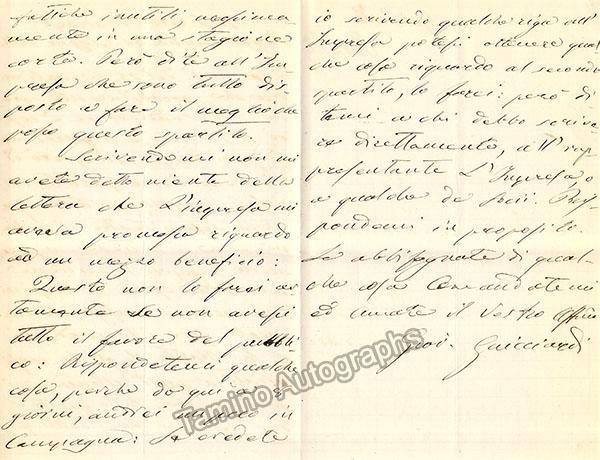 fatiche inutili, massima
mente in una stagione
corta. Però dite all'Im
presa che sono tutto dis
posto a fare il meglio che
posso questo spartito.
Scrivendomi non mi
avete detto niente della
lettera che l'impresa mi
aveva promessa riguardo
ad un mezzo beneficio:
Questo non lo farei cer
tamente se non avessi
tutto il favore del pubbli
co: Rispondetemi qualche
cosa, perchè da qui a
giorni, andrei un poco in
Campagna: Se credete
io scrivendo qualche riga all'
Impresa potessi ottenere qual
che cosa riguardo al secondo
spartito, lo farei: però di
temi a chi debbo scrive
re direttamente, all' rap
presentante L'Impresa o
a qualche de Soci. Ris
pondemi in proposito.
Se abbisognate di qual
che cosa Comandatemi
ed amate il Vostro Affmo
Giov. Guicciardi
Tamino Autographs